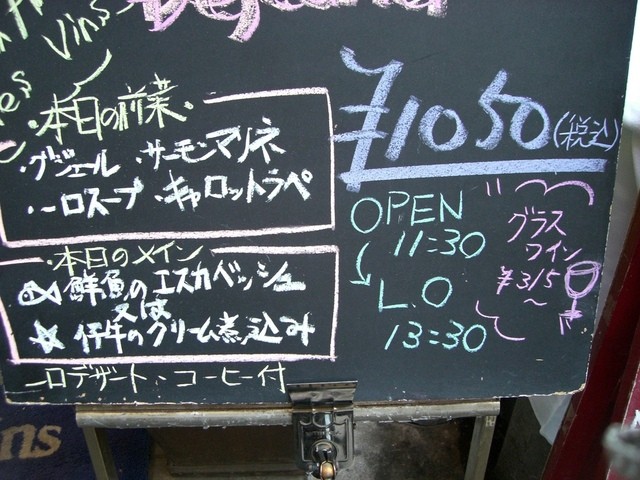 vins
Déjeuner
本日の前菜
・グジェール ・サーモンマリネ
・一口スープ ・キャロットラペ
・本日のメイン
鮮魚のエスカベッシュ
又は
仔牛のクリーム煮込み
一口デザート、コーヒー付
¥1050(税込)
OPEN
11:30
L.O
13:30
グラス
ワイン
¥315
～
ns